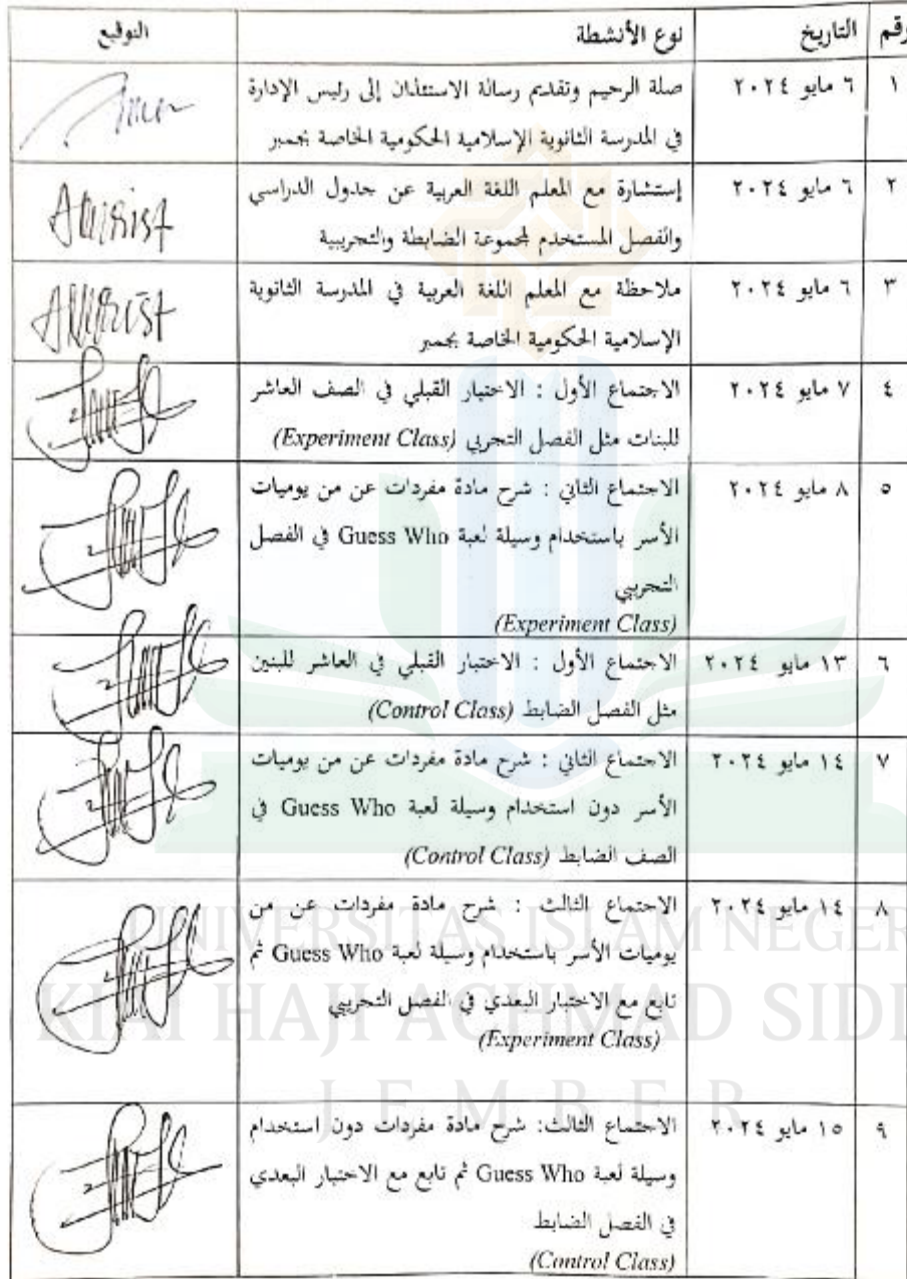 رقم التاريخ نوع الأنشطة التوقيع
١ ٦ مايو ٢٠٢٤ صلة الرحيم وتقديم رسالة الاستئذان إلى رئيس الإدارة
في المدرسة الثانوية الإسلامية الحكومية الخاصة بجمبر
٢ ٦ مايو ٢٠٢٤ إستشارة مع المعلم اللغة العربية عن جدول الدراسي
والفصل المستخدم لمجموعة الضابطة والتجريبية
٣ ٦ مايو ٢٠٢٤ ملاحظة مع المعلم اللغة العربية في المدرسة الثانوية
الإسلامية الحكومية الخاصة بجمبر
٤ ٧ مايو ٢٠٢٤ الاجتماع الأول : الاختبار القبلي في الصف العاشر
للبنات مثل الفصل التجربي (Experiment Class)
٥ ٨ مايو ٢٠٢٤ الاجتماع الثاني : شرح مادة مفردات عن من يوميات
الأسر باستخدام وسيلة لعبة Guess Who في الفصل
التجريبي
(Experiment Class)
٦ ١٣ مايو ٢٠٢٤ الاجتماع الأول : الاختبار القبلي في العاشر للبنين
مثل الفصل الضابط (Control Class)
٧ ١٤ مايو ٢٠٢٤ الاجتماع الثاني : شرح مادة مفردات عن من يوميات
الأسر دون استخدام وسيلة لعبة Guess Who في
الصف الضابط (Control Class)
٨ ١٤ مايو ٢٠٢٤ الاجتماع الثالث : شرح مادة مفردات عن من
يوميات الأسر باستخدام وسيلة لعبة Guess Who ثم
تابع مع الاختبار البعدي في الفصل التجريبي
(Experiment Class)
٩ ١٥ مايو ٢٠٢٤ الاجتماع الثالث: شرح مادة مفردات دون استخدام
وسيلة لعبة Guess Who ثم تابع مع الاختبار البعدي
في الفصل الضابط
(Control Class)
UNIVERSITAS ISLAM NEGER
KIAI HAJI ACHMAD SIDI
JEMBER